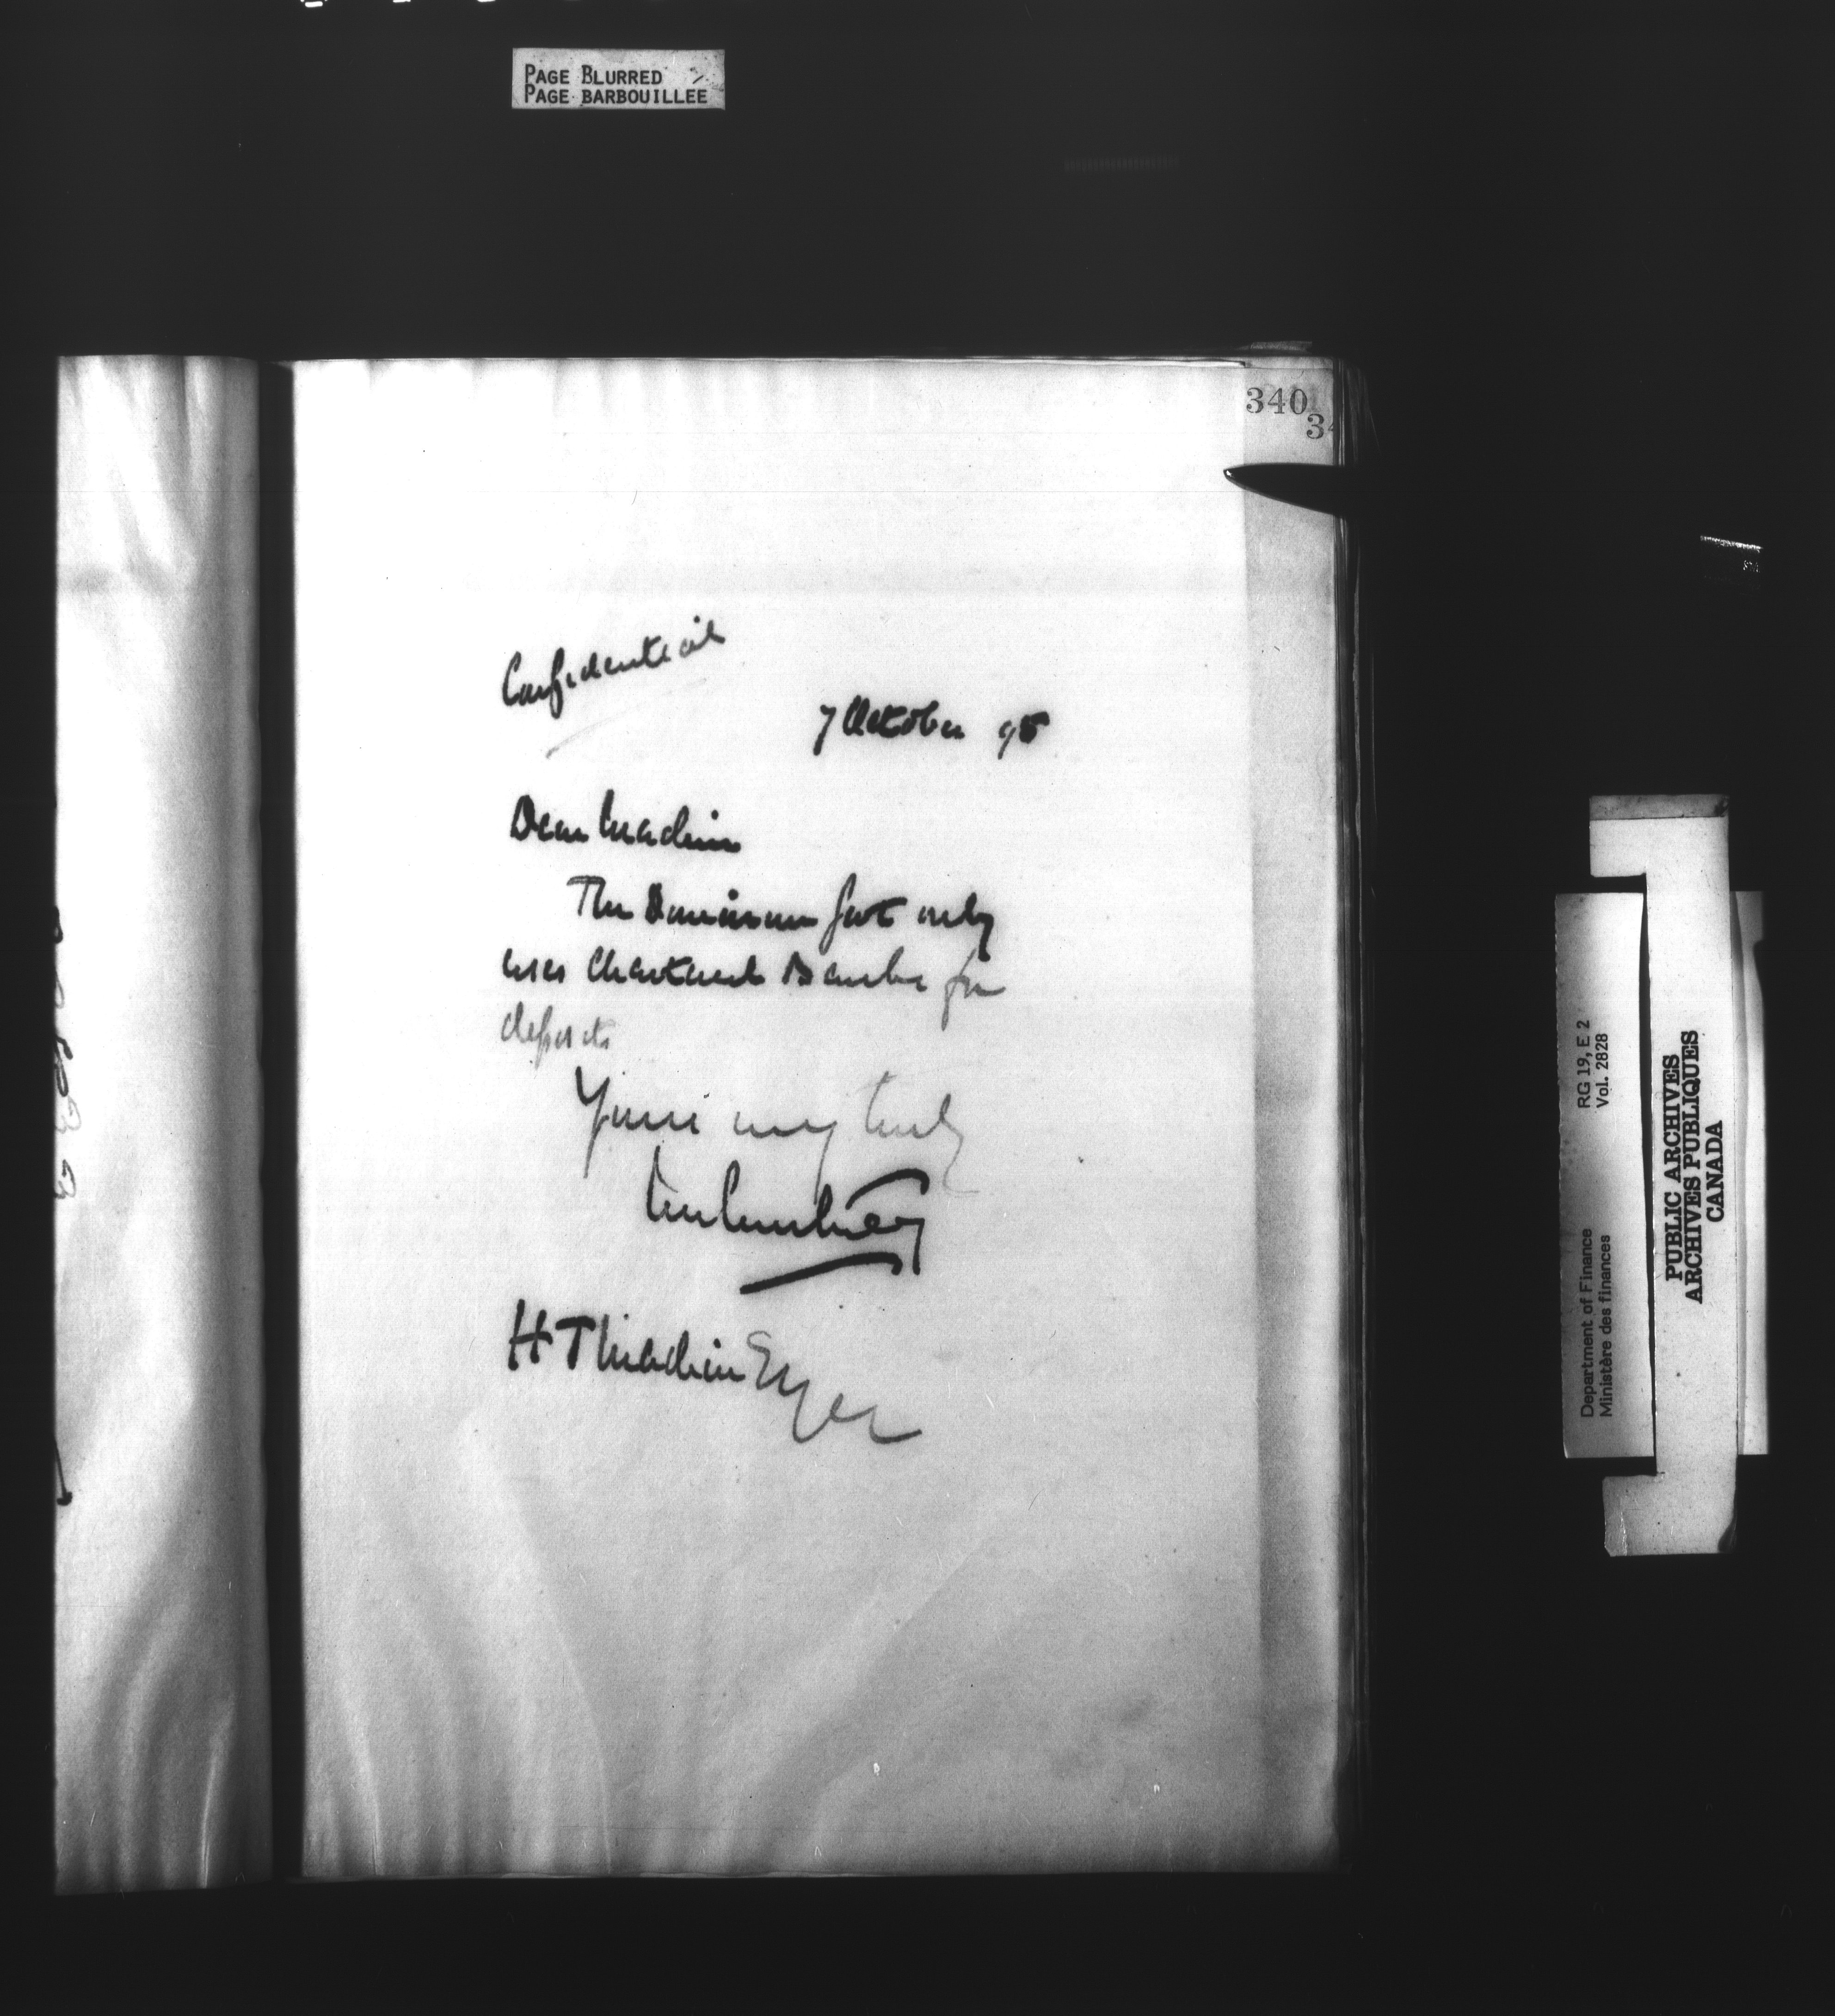 PAGE BLURRED
PAGE BARBOUILLEE
340
34
Confidential
7 October 95
Dear Machin
The Dominion Govt only
uses Chartered Banks for
deposits
Yours very truly
H T Machin Esqre
RG 19, E 2
Vol. 2828
Department of Finance
Ministère des finances
PUBLIC ARCHIVES
ARCHIVES PUBLIQUES
CANADA